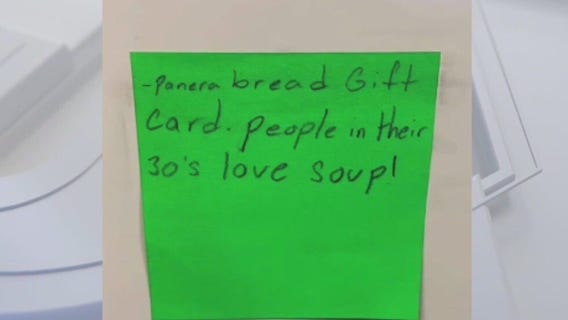 -Panera bread Gift
Card. people in their
30's love soup!